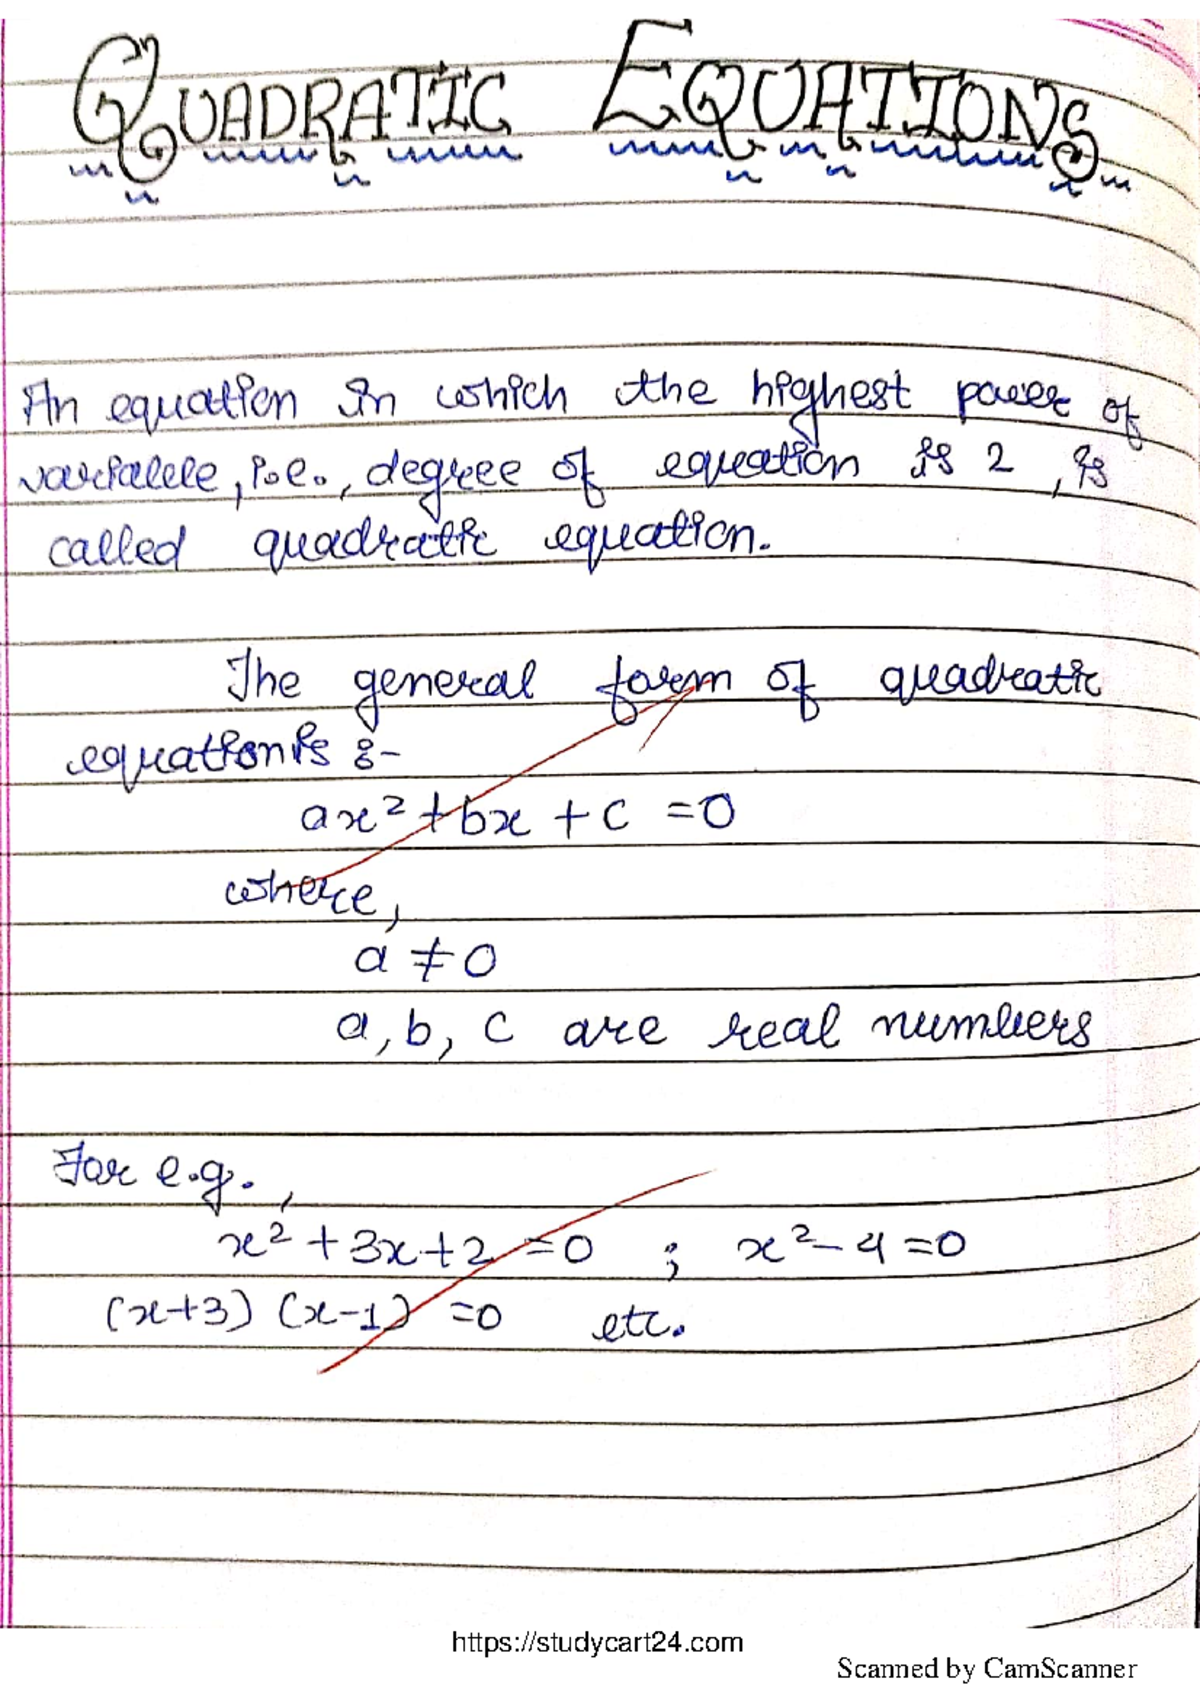 QUADRATIC EQUATIONS
An equation in which the highest power of
variable, i.e., degree of equation is 2, is
called quadratic equation.
The general form of quadratic
equation is :-
ax² + bx + c = 0
where,
a ≠ 0
a, b, c are real numbers
For e.g.,
x² + 3x + 2 = 0 ; x² - 4 = 0
(x+3) (x-1) = 0 etc.
https://studycart24.com
Scanned by CamScanner